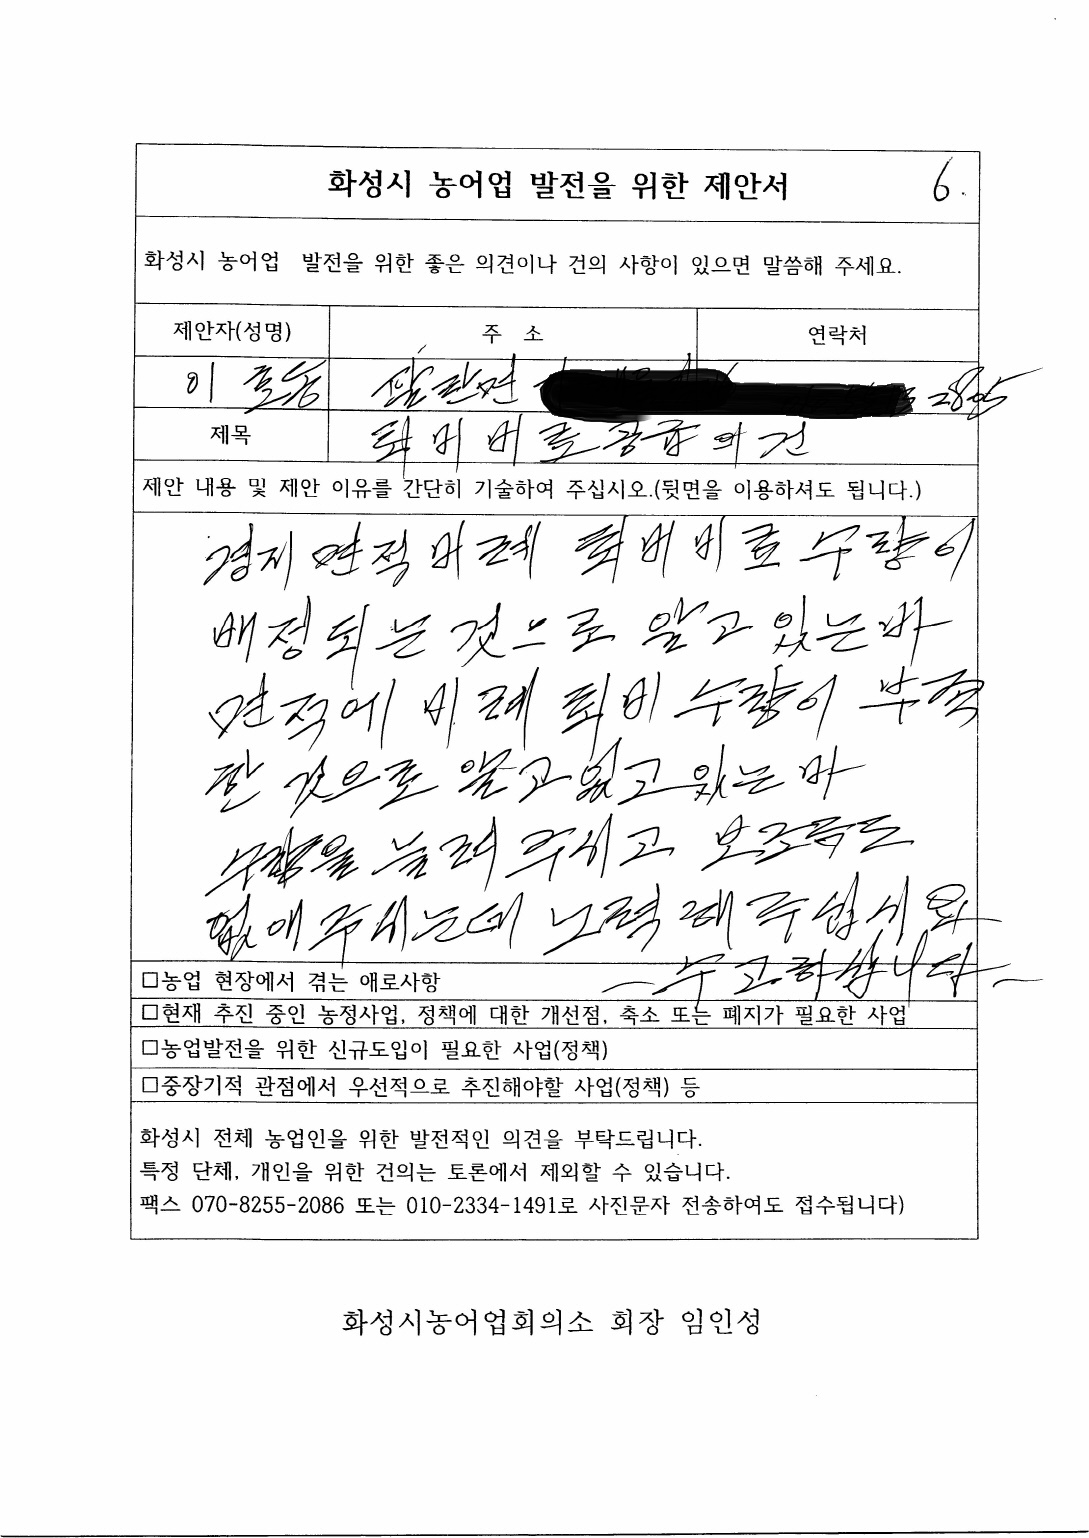 화성시 농어업 발전을 위한 제안서 6.
화성시 농어업 발전을 위한 좋은 의견이나 건의 사항이 있으면 말씀해 주세요.
제안자(성명) 주 소 연락처
이 호동 팔탄면
제목 퇴비 비료 공급의 건
제안 내용 및 제안 이유를 간단히 기술하여 주십시오.(뒷면을 이용하셔도 됩니다.)
경지 면적 비례 퇴비 비료 수량이
배정되는 것으로 알고 있는바
면적에 비례 퇴비 수량이 부족
한 것으로 알고 있는 바
수량을 늘려 주시고
없애 주시는데 노력 해 주십시요
수고하십니다
□농업 현장에서 겪는 애로사항
□현재 추진 중인 농정사업, 정책에 대한 개선점, 축소 또는 폐지가 필요한 사업
□농업발전을 위한 신규도입이 필요한 사업(정책)
□중장기적 관점에서 우선적으로 추진해야할 사업(정책) 등
화성시 전체 농업인을 위한 발전적인 의견을 부탁드립니다.
특정 단체, 개인을 위한 건의는 토론에서 제외할 수 있습니다.
팩스 070-8255-2086 또는 010-2334-1491로 사진문자 전송하여도 접수됩니다)
화성시농어업회의소 회장 임인성